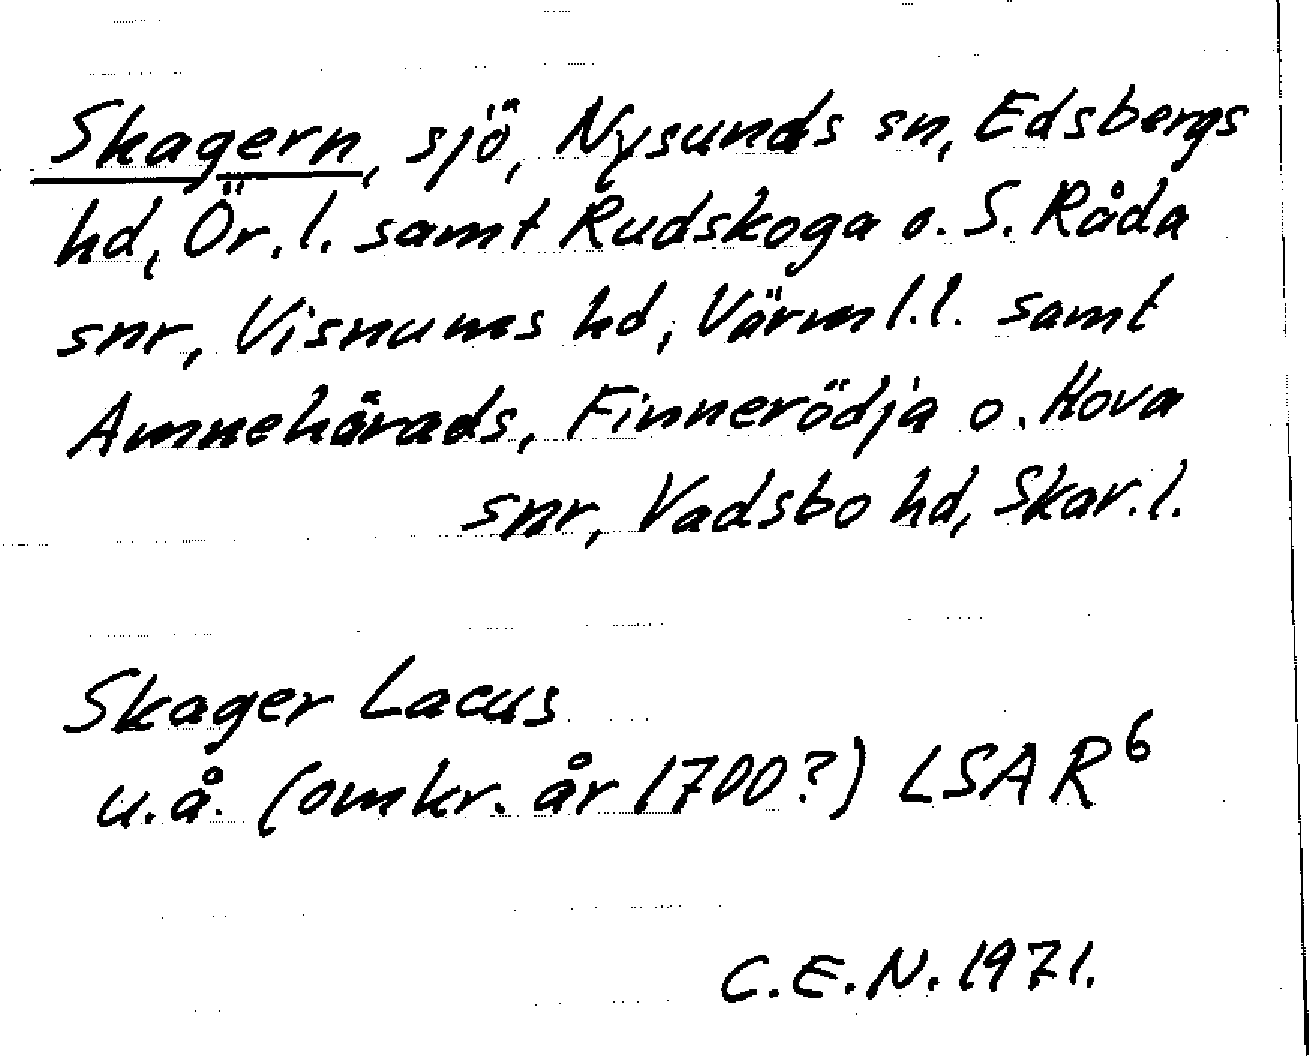 Skagern, sjö, Nysunds sn, Edsbergs
hd, Ör. l. samt Rudskoga o. S. Råda
snr, Visnums hd, Värml. l. samt
Amnehärads, Finnerödja o. Hova
snr, Vadsbo hd, Skar. l.
Skager Lacus
u.å. (omkr. år 1700?) LSAR⁶
C.E.N. 1971.